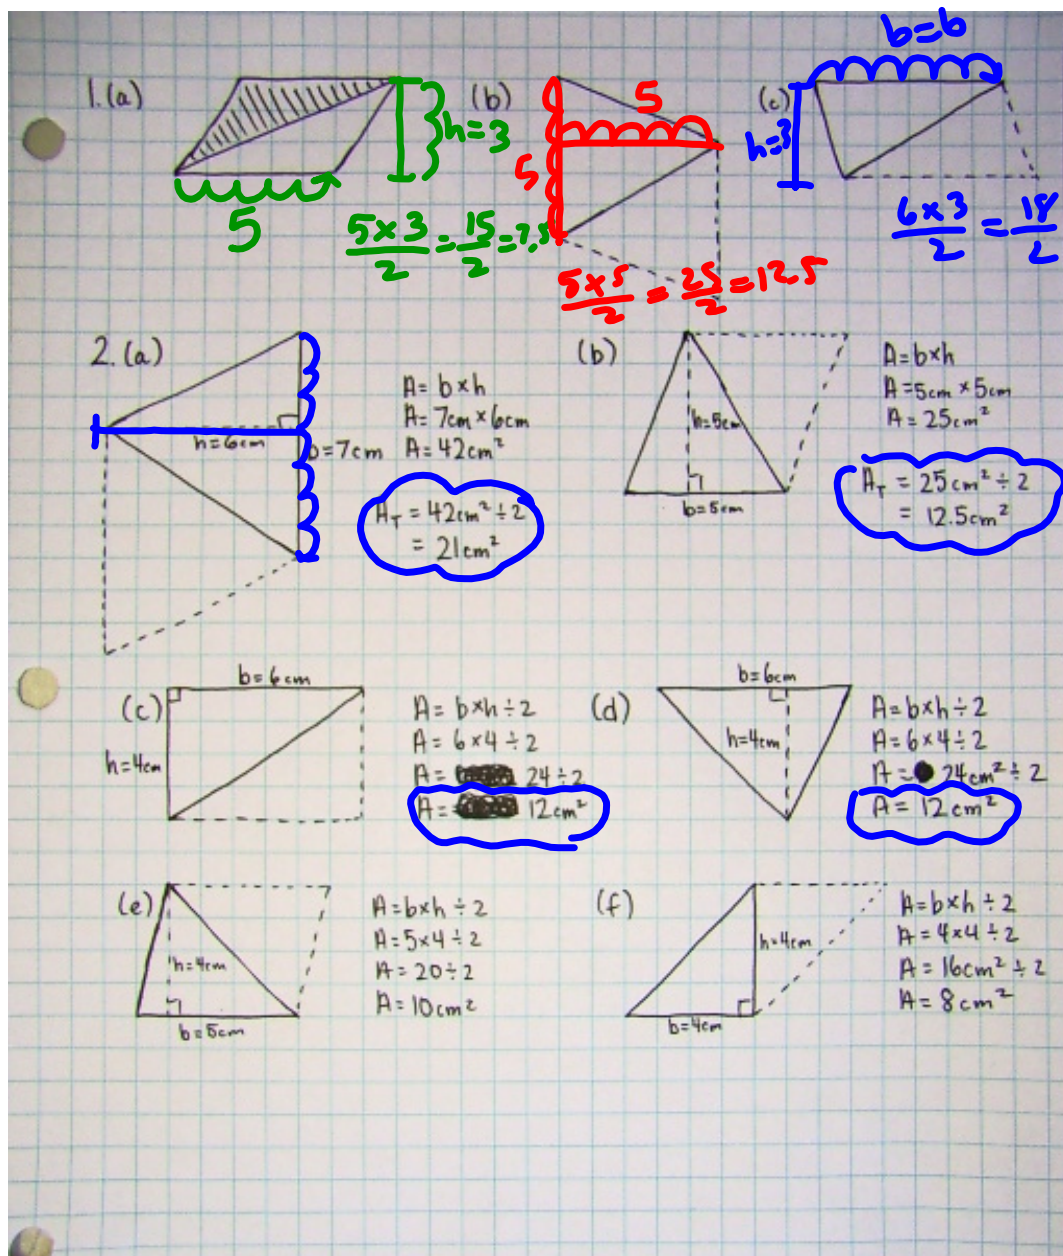 b=6
1.(a)
h=3
5
5×3/2 = 15/2 = 7.5
(b)
5
5
5×5/2 = 25/2 = 12.5
(c)
h=3
6×3/2 = 18/2
2.(a)
h=6cm
b=7cm
A= b×h
A= 7cm×6cm
A= 42cm²
A_T = 42cm²÷2
= 21cm²
(b)
h=5cm
b=5cm
A=b×h
A=5cm×5cm
A= 25cm²
A_T = 25cm²÷2
= 12.5cm²
(c)
b=6cm
h=4cm
A= b×h÷2
A= 6×4÷2
A= 24÷2
A= 12cm²
(d)
b=6cm
h=4cm
A=b×h÷2
A=6×4÷2
A= 24cm²÷2
A= 12cm²
(e)
h=4cm
b=5cm
A=b×h÷2
A=5×4÷2
A=20÷2
A=10cm²
(f)
h=4cm
b=4cm
A=b×h÷2
A=4×4÷2
A=16cm²÷2
A=8cm²